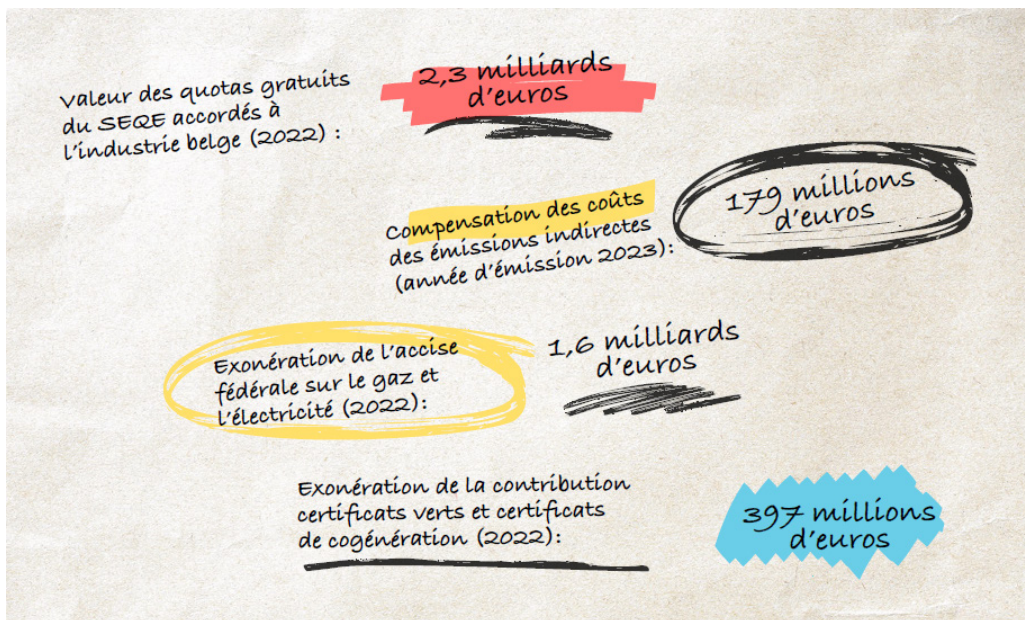 Valeur des quotas gratuits
du SEQE accordés à
l'industrie belge (2022) :
2,3 milliards
d'euros
Compensation des coûts
des émissions indirectes
(année d'émission 2023):
179 millions
d'euros
Exonération de l'accise
fédérale sur le gaz et
l'électricité (2022):
1,6 milliards
d'euros
Exonération de la contribution
certificats verts et certificats
de cogénération (2022):
397 millions
d'euros